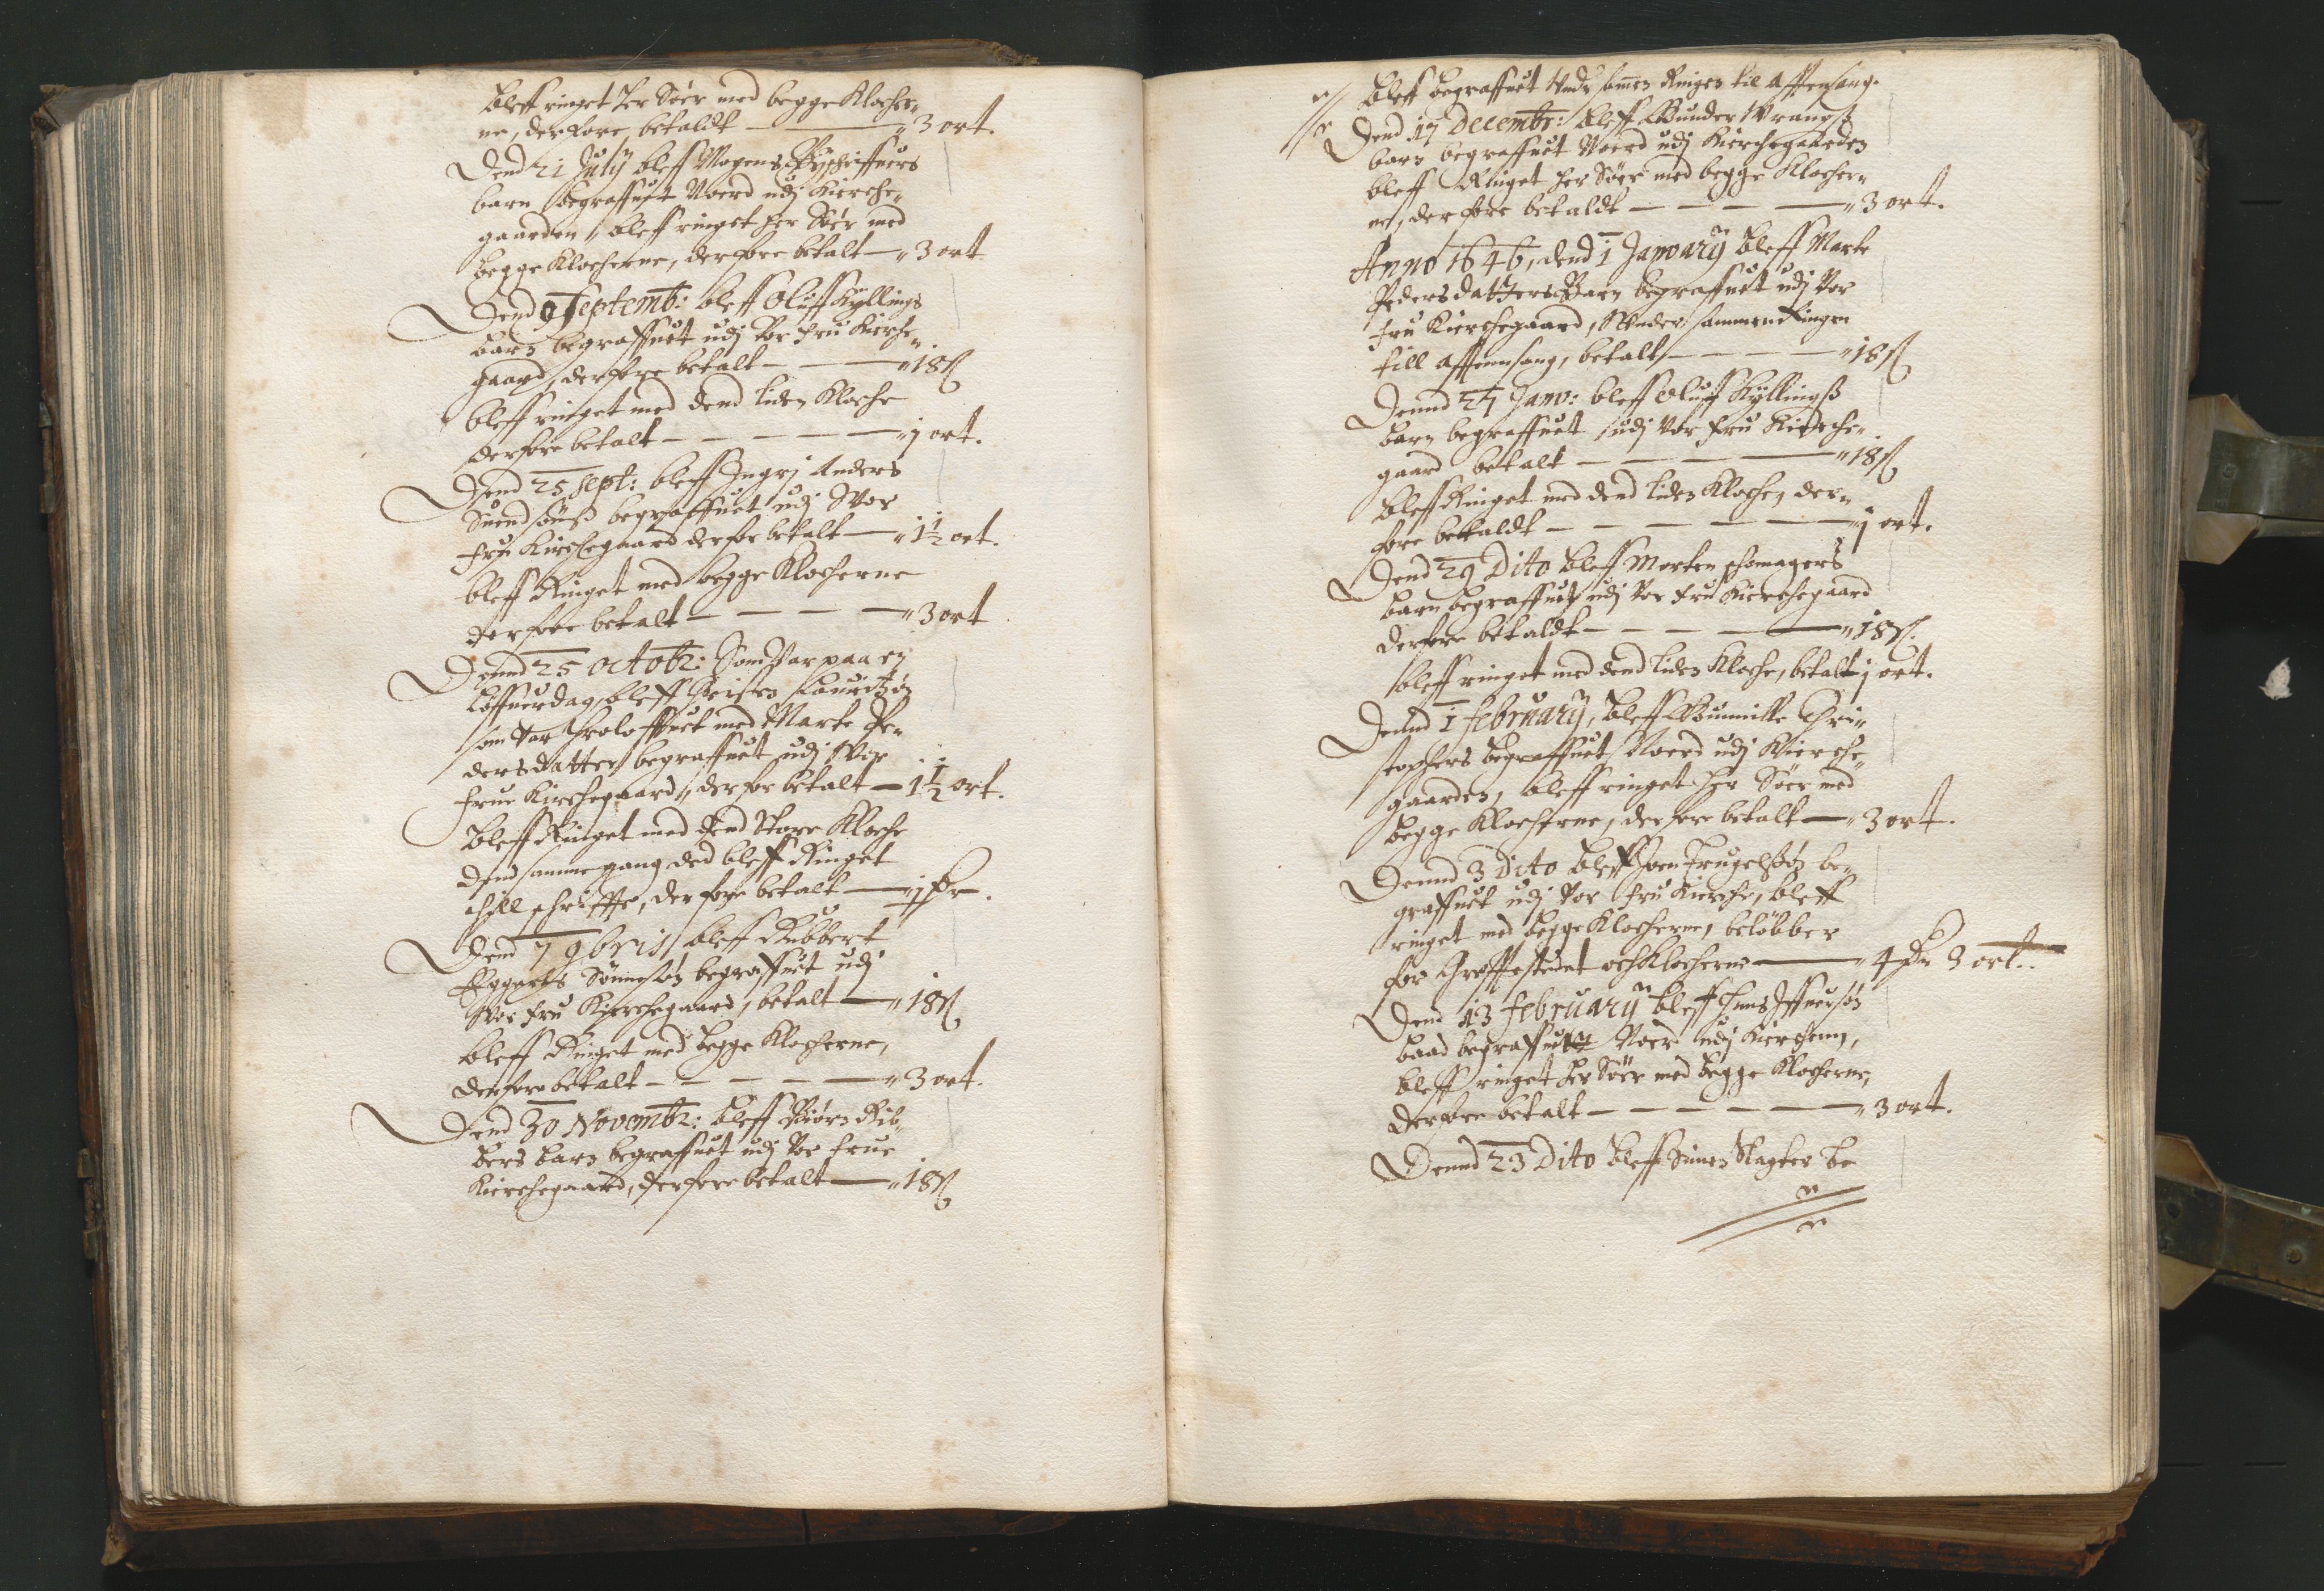 bleff ringet her Söer med begge Klocher¬
ne, derfore betaldt — „3 ort.
Dend 21 July bleff Mogens Byschriffuers
barn begraffuet Noerd udj Kierche¬
gaarden, bleff ringet her Söer med
begge Klocherne, derfore betalt — „3 ort
Dend 9 Septemb: bleff Oluff Kyllings
barn begraffuet udj Vor frue Kierche¬
gaard, derfore betalt — „18 ß
bleff ringet med dend liden Kloche
derfore betalt — — — — „1 ort.
Dend 25 Sept: bleff Ingrj Anders
Suendsönß begraffuet udj Vor
fru Kirchegaard derfor betalt — „1½ ort.
bleff Ringet med begge Klocherne
derfore betalt — — — „3 ort
Dennd 25 Octob: Som Var paa en
Löffuerdag, bleff Lauritzön
som var troloffuet med Marte Pe¬
dersdatter begraffuet udj Vor
frue Kirchegaard, derfor betalt — 1½ ort.
bleff Ringet med dend Store Kloche
dend samme gang ded bleff Ringet
thill schriffte, derfore betalt — „1 ſpe.
Dend 7 9bris bleff Rubbert
Eggerts Sönnesön begraffuet udj
Vor fru Kierchegaard, betalt — „18 ß
bleff Ringet med begge Klocherne,
derfore betalt — — — — „3 ort.
Dend 30 Novemb: bleff Biörn Rib¬
bers barn begraffuet udj Vor frue
Kierchegaard, derfore betalt — „18 ß
bleff begraffuet Under samen Ringen til afftensang.
Dend 17 Decembr: bleff Gunder Wrangß
barn begraffuet Noerd udj Kierchegaarden
bleff Ringet her Söer med begge Klocher¬
ne, derfore betaldt — — — „3 ort.
Anno 1646, dend 1 January bleff Marte
Pedersdatters Barn begraffuet udj Vor
fru Kierchegaard, Under sammend Ringen
till afftennsang, betalt — — — „18 ß
Dennd 24 Janv: bleff Oluff Kyllingß
barn begraffuet udj Vor fru Kierche¬
gaard betalt — — — „18 ß
bleff Ringet med dend liden Kloche, der¬
fore betaldt — — — — „1 ort.
Dend 29 Dito bleff Morten schomagers
barn begraffuet udj Vor fru Kierchegaard
derfore betaldt — — — „18 ß.
bleff ringet med dend liden Kloche, betalt 1 ort.
Dennd 1 february, bleff Gunnille Chri¬
stophers begraffuet Noerd udj Kierche¬
gaarden, bleff ringet her Söer med
begge Klocherne, derfore betalt — „3 ort.
Dennd 3 Dito bleff Iven Trugelßön be¬
graffuet udj Vor fru Kierche, bleff
ringet med begge Klocherne, belöbber
for Greffstedet och Klocherne — „4 Dr 3 ort..
Dend 13 february bleff Hans Iffuersön
baad begraffuet Noerd udj Kierchenn,
bleff ringet her Söer med begge Klocherne,
derfore betalt — — — — „3 ort.
Dennd 23 Dito bleff Simen Slagter be